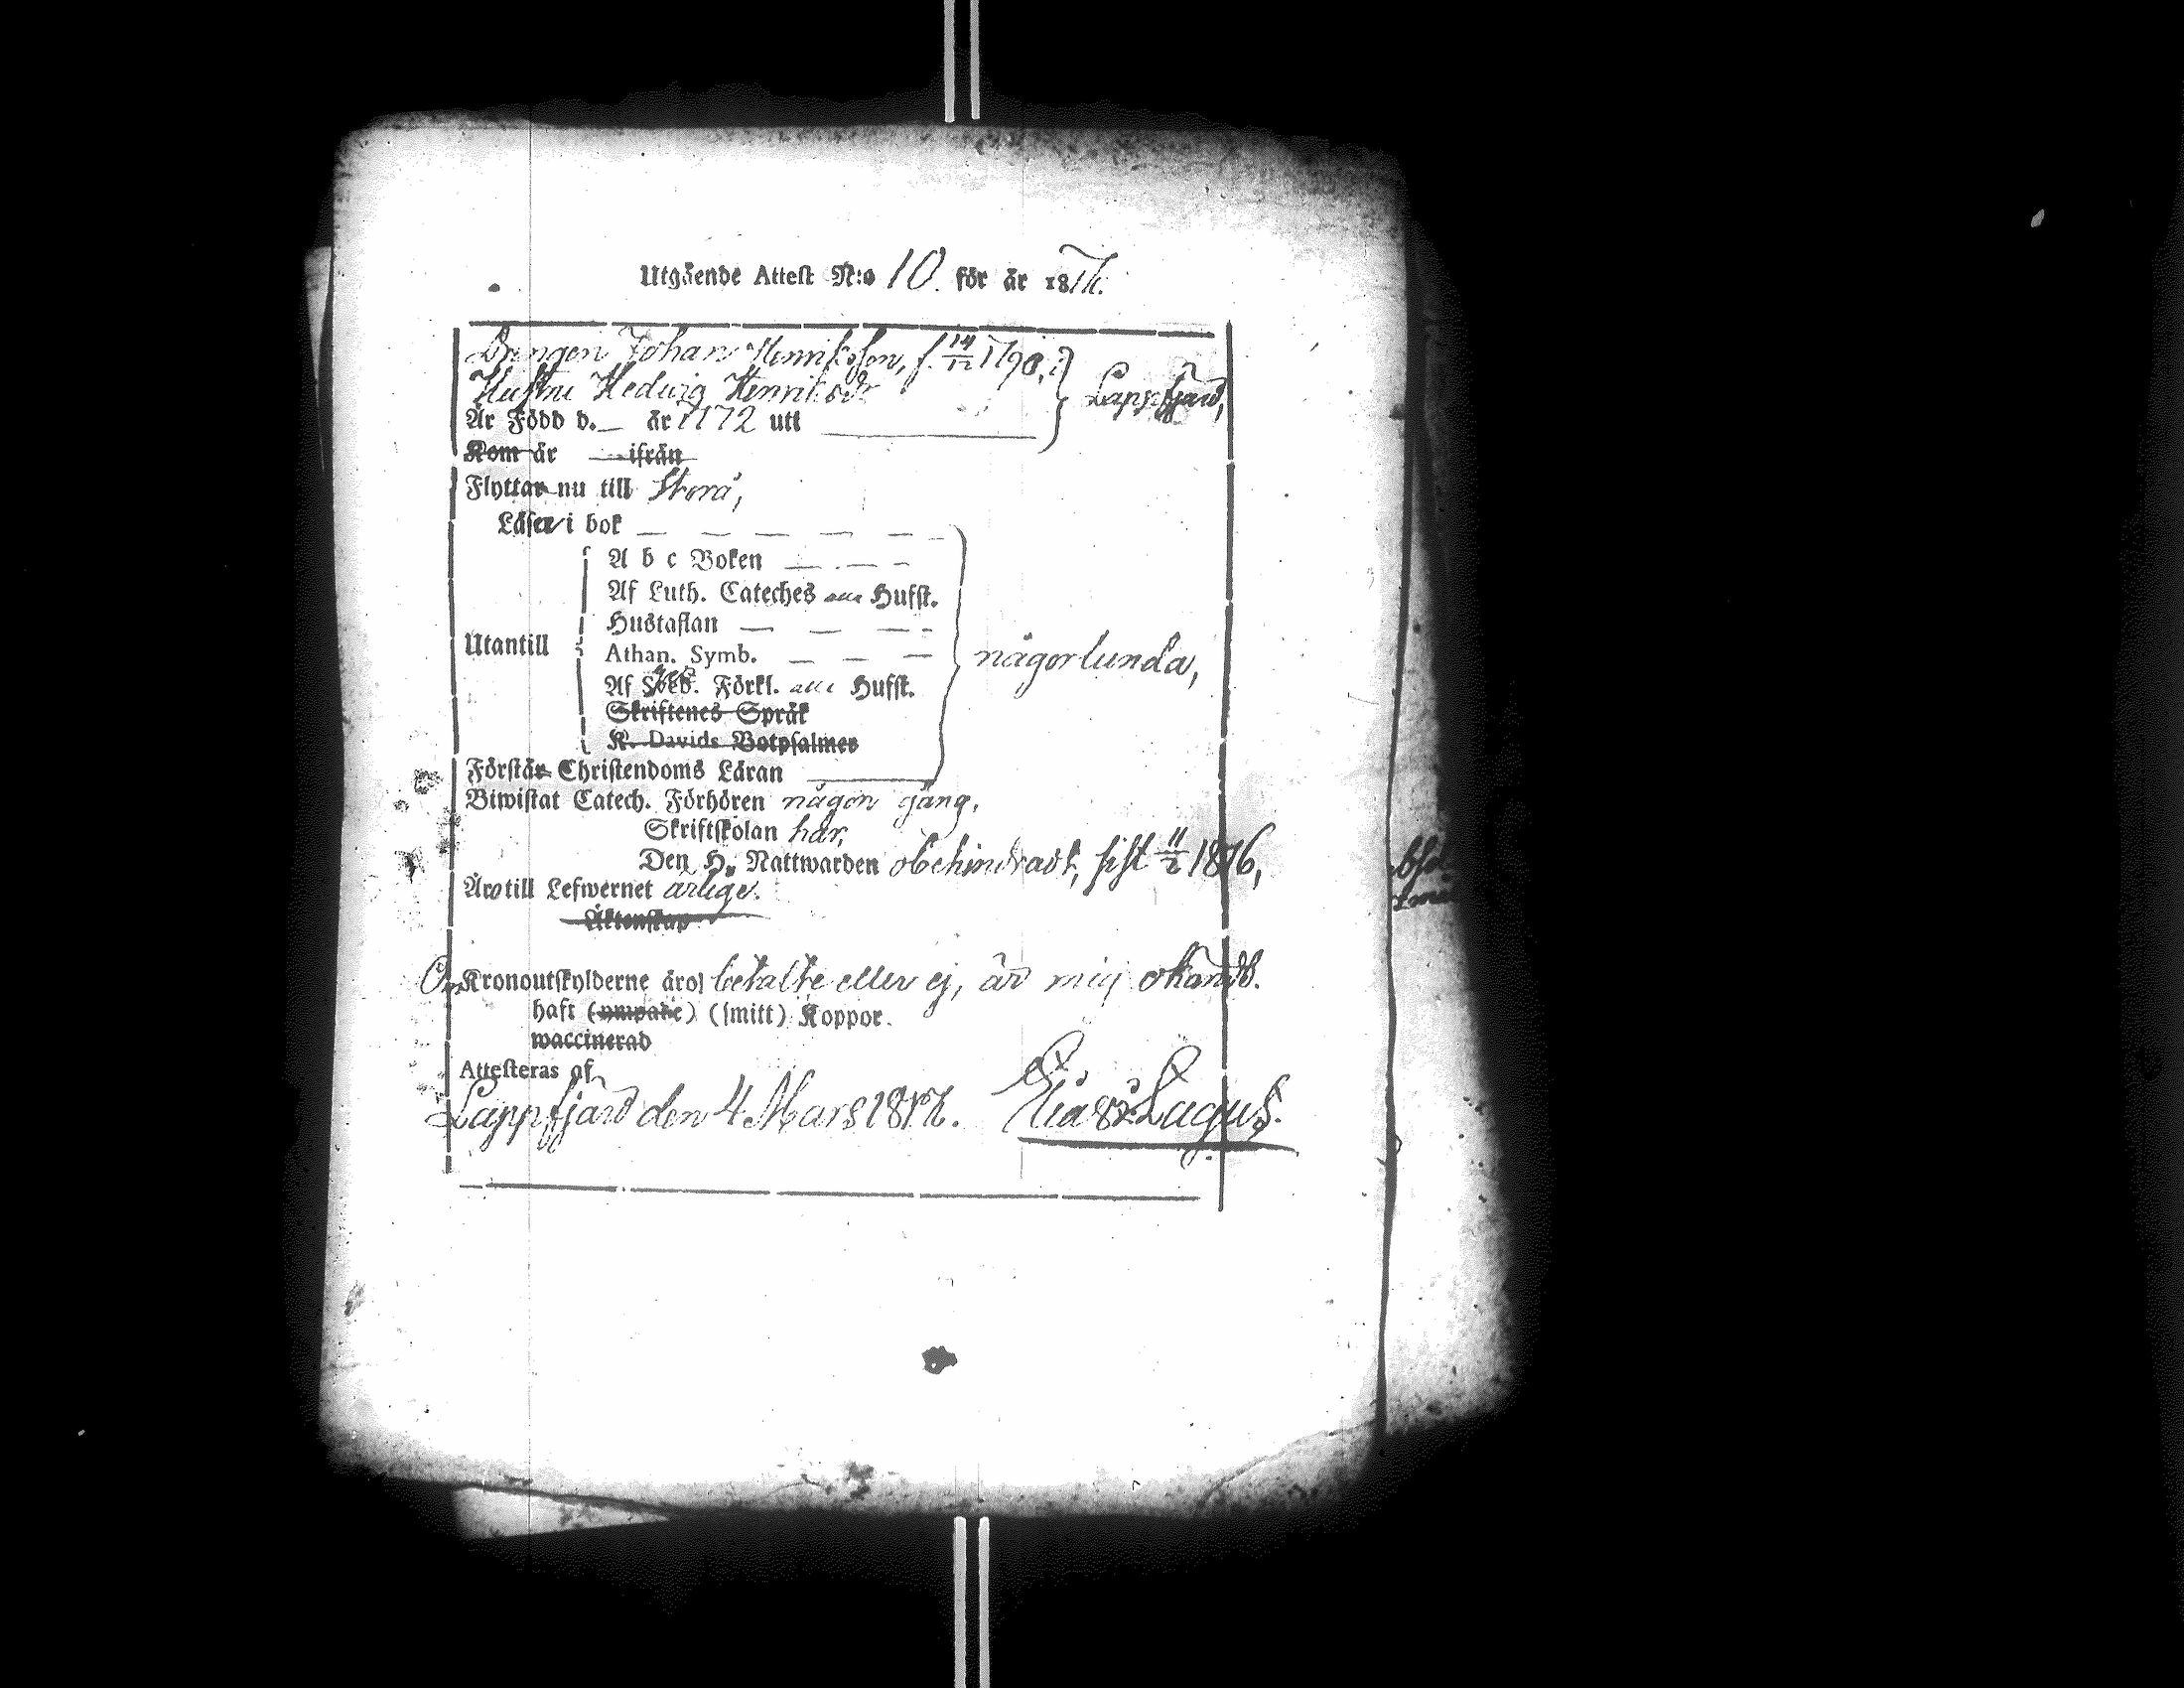 Utgående Attest N:o 10. för år 1816.
Drengen Johan Henriksson, f. 14/12 1790, i
Hustru Hedwig Henriksdr Lappfjärd,
Är Född d. — år 1772 uti
Kom år — ifrån
Flyttar nu till Storå,
Läser i bok — — — — — —
A b c Boken — — — —
Af Luth. Cateches alla Hufst.
Hustaflan — — — —
Utantill Athan. Symb. — — — någorlunda,
Af Förkl. alla Hufst.
Skriftenes Språk
K. Davids Botpsalmer
Förstår Christendoms Läran
Biwistat Catech. Förhören någon gång,
Skriftskolan har,
Den H. Nattwarden obehindradt, sist 11/2 1816,
Äro till Lefwernet ärlige.
Äktenskap
Om Kronoutskylderne äro betalte eller ej, är mig okändt.
haft (ympade) (smitt) Koppor.
waccinerad
Attesteras af
Lappfjärd den 4 Mars 1816. Elias Lagus.